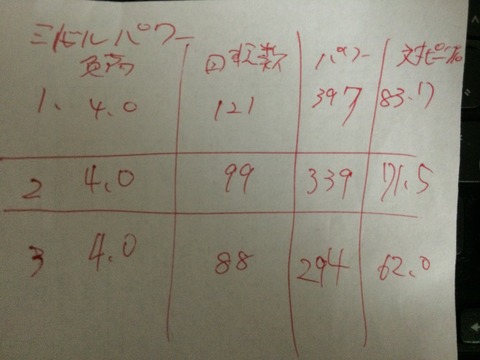 ミドルパワー
負荷 回転数 パワー 対ピーク
1. 4.0 121 397 83.7
2 4.0 99 339 71.5
3 4.0 88 294 62.0